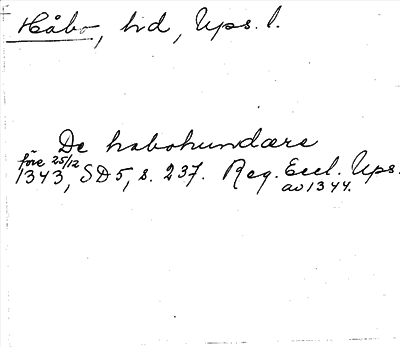 Håbo, hd, Ups. l.
De habohundære
före 25/12
1343, SD 5, s. 237. Reg. Eccl. Ups.
av 1344.